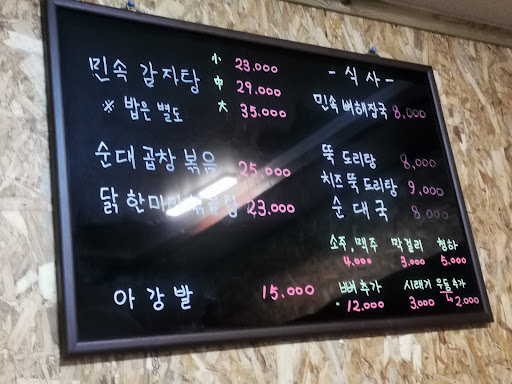 민속 감자탕 小 23.000
中 29.000
※ 밥은 별도 大 35.000
순대 곱창 볶음 25,000
닭 한마리 볶음탕 23.000
아 강 발 15.000
- 식 사 -
민속 뼈해장국 8,000
뚝 도리탕 8,000
치즈 뚝 도리탕 9,000
순 대 국 8,000
소주, 맥주 막걸리 청하
4.000 3.000 5.000
뼈추가 시래기 우동추가
12.000 3.000 2.000